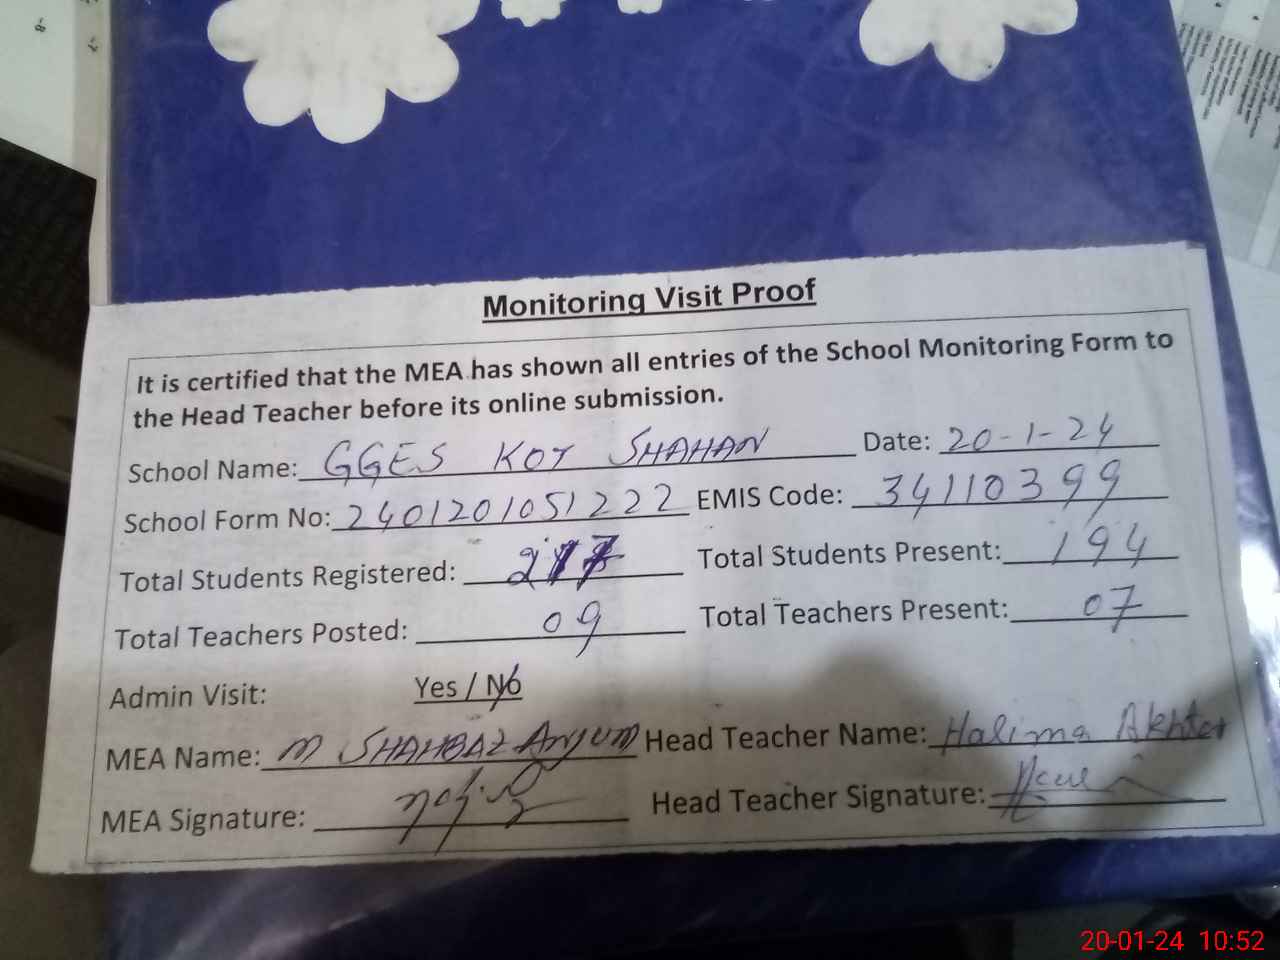 Monitoring Visit Proof
It is certified that the MEA has shown all entries of the School Monitoring Form to
the Head Teacher before its online submission.
School Name: GGES KOT SHAHAN Date: 20-1-24
School Form No: 2401201051222 EMIS Code: 34110399
Total Students Registered: 217 Total Students Present: 194
Total Teachers Posted: 09 Total Teachers Present: 07
Admin Visit: Yes / No
MEA Name: M SHAHBAZ Anjum Head Teacher Name: Halima Akhter
MEA Signature: Head Teacher Signature:
20-01-24 10:52